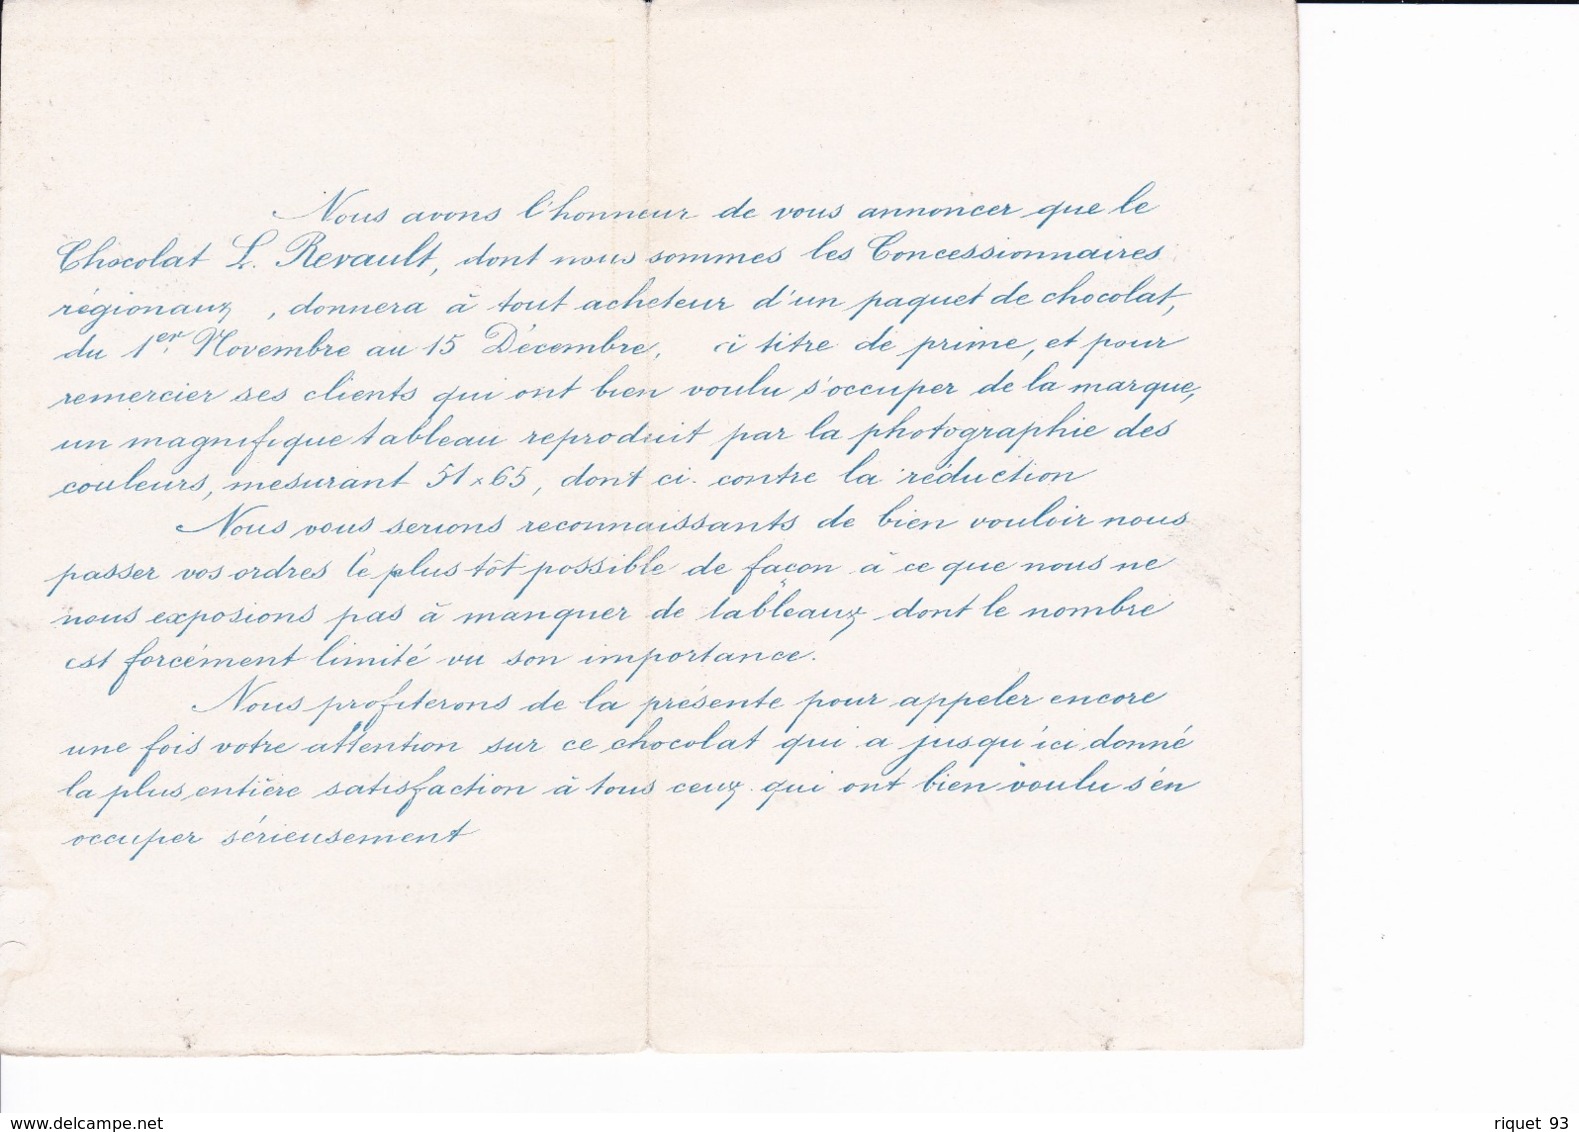 Nous avons l'honneur de vous annoncer que le
Chocolat L. Revault, dont nous sommes les Concessionnaires
régionaux, donnera à tout acheteur d'un paquet de chocolat,
du 1er Novembre au 15 Décembre, à titre de prime, et pour
remercier ses clients qui ont bien voulu s'occuper de la marque,
un magnifique tableau reproduit par la photographie des
couleurs, mesurant 51 x 65, dont ci-contre la réduction
Nous vous serions reconnaissants de bien vouloir nous
passer vos ordres le plus tôt possible de façon à ce que nous ne
nous exposions pas à manquer de tableaux dont le nombre
est forcément limité vu son importance.
Nous profiterons de la présente pour appeler encore
une fois votre attention sur ce chocolat qui a jusqu'ici donné
la plus entière satisfaction à tous ceux qui ont bien voulu s'en
occuper sérieusement
www.delcampe.net
riquet 93